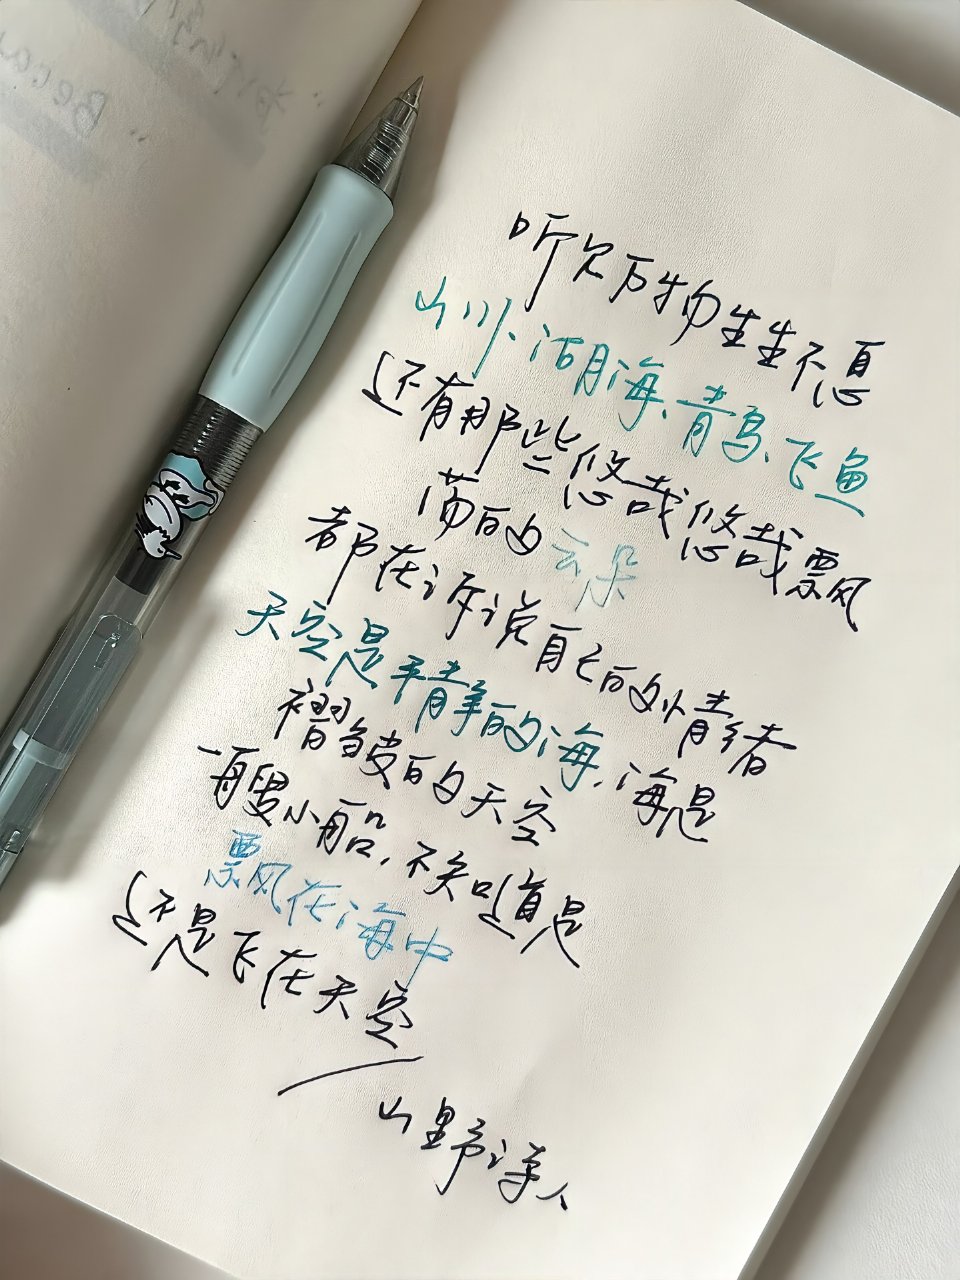 听见万物生生不息
山川、湖海、青鸟、飞鱼
还有那些悠哉悠哉飘
荡的云朵
都在诉说自己的情绪
天空是平静的海,海是
褶皱的天空
一艘小船,不知道是
飘在海中
还是飞在天空
山野诗人